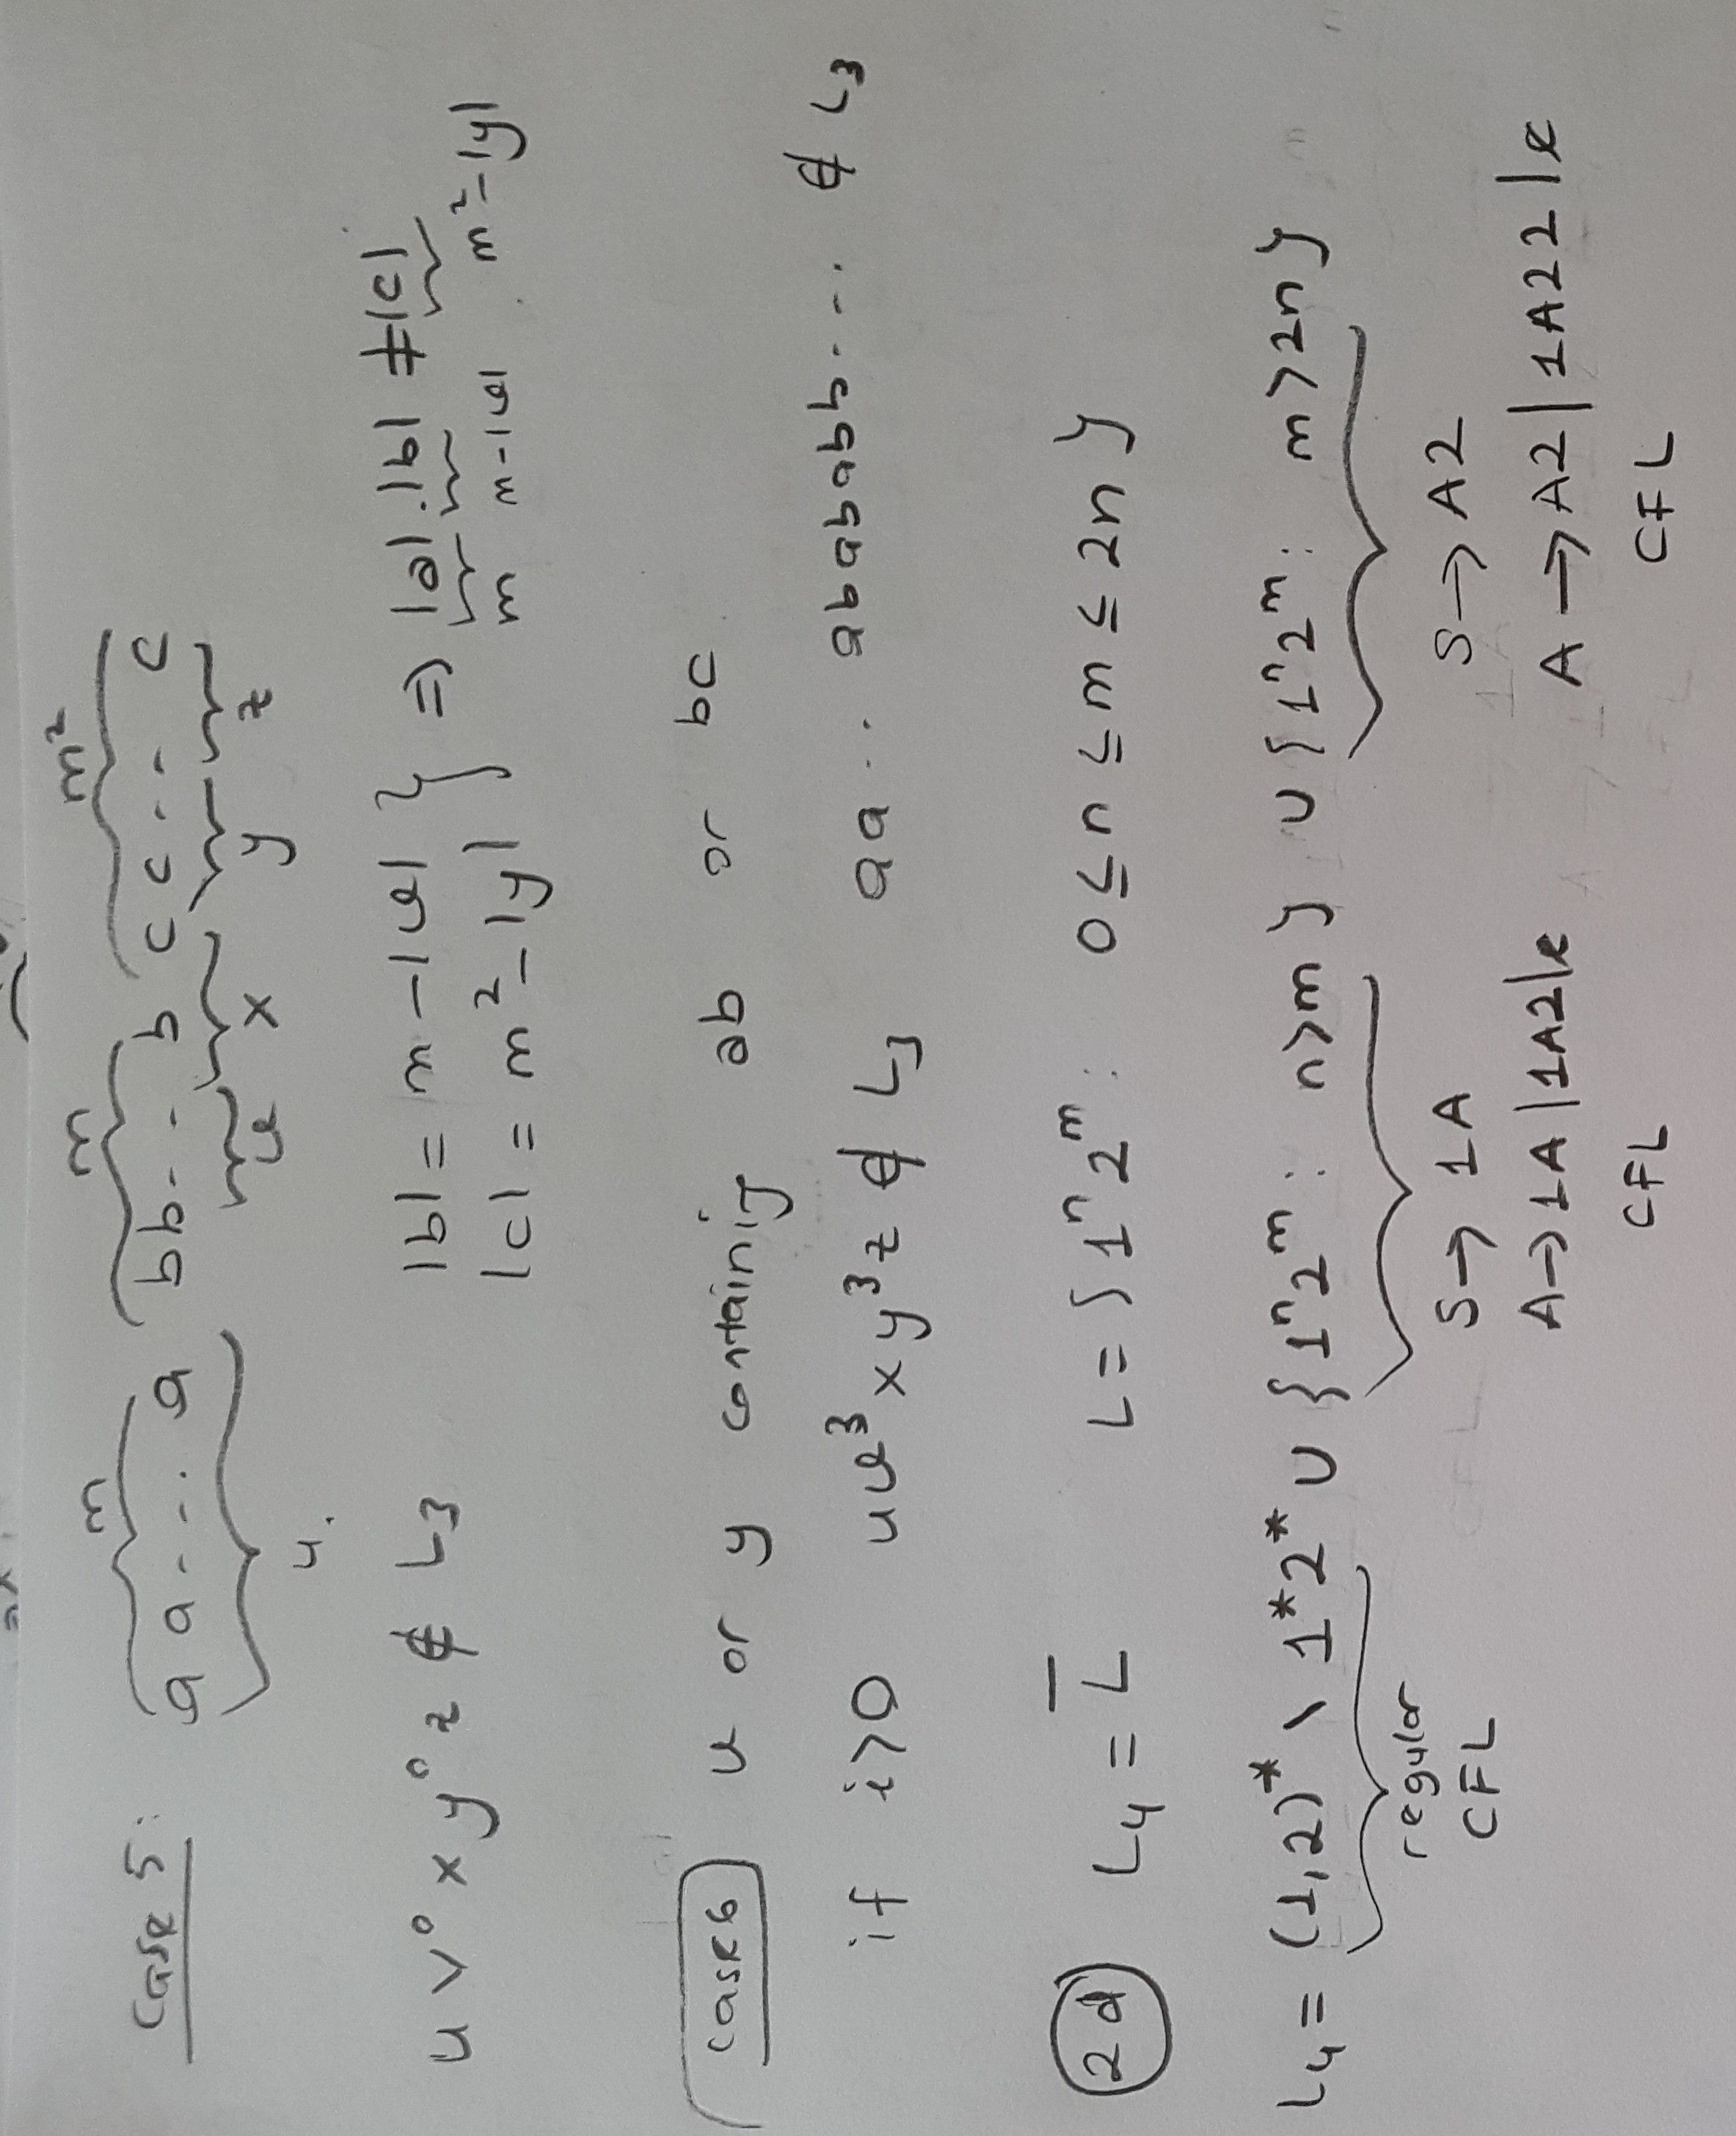 m m m²
case 5: a a - - . . a b b - - b c c - - c
u v x y z
u v⁰ x y⁰ z ∉ L₃ |b| = m - |v| } ⇒ |a| . |b| ≠ |c|
|c| = m² - |y| m m - |v| m² - |y|
case 6 v or y containing ab or bc
if i>0 u v³ x y³ z ∉ L₃ aa .. abababb - - - . ∉ L₃
2d L₄ = L̅ L = { 1ⁿ 2ᵐ : 0 ≤ n ≤ m ≤ 2n }
L₄ = (1,2)* \ 1*2* ∪ { 1ⁿ 2ᵐ : n>m } ∪ { 1ⁿ 2ᵐ : m>2n }
regular
CFL S → 1A S → A2
A → 1A | 1A2 | ε A → A2 | 1A22 | ε
CFL CFL